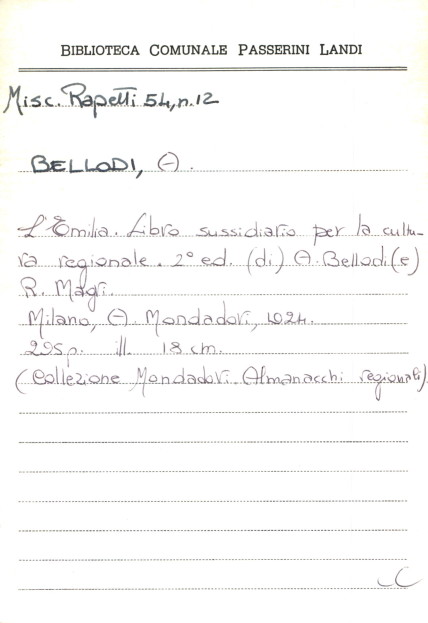 BIBLIOTECA COMUNALE PASSERINI LANDI
Misc. Rapetti 54, n. 12
BELLODI, A.
L'Emilia. Libro sussidiario per la cultu-
ra regionale. 2° ed. (di) A. Bellodi (e)
R. Magri.
Milano, A. Mondadori, 1924.
295 p. ill. 18 cm.
(Collezione Mondadori Almanacchi regionali)